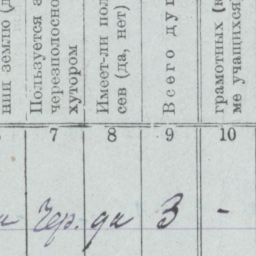 нии землю (д
Пользуется а
черезполосно
хутором
Имеет-ли пол
сев (да, нет)
Всего ду
грамотных (к
ме учащихся)
7 8 9 10
Чер. да 3 -